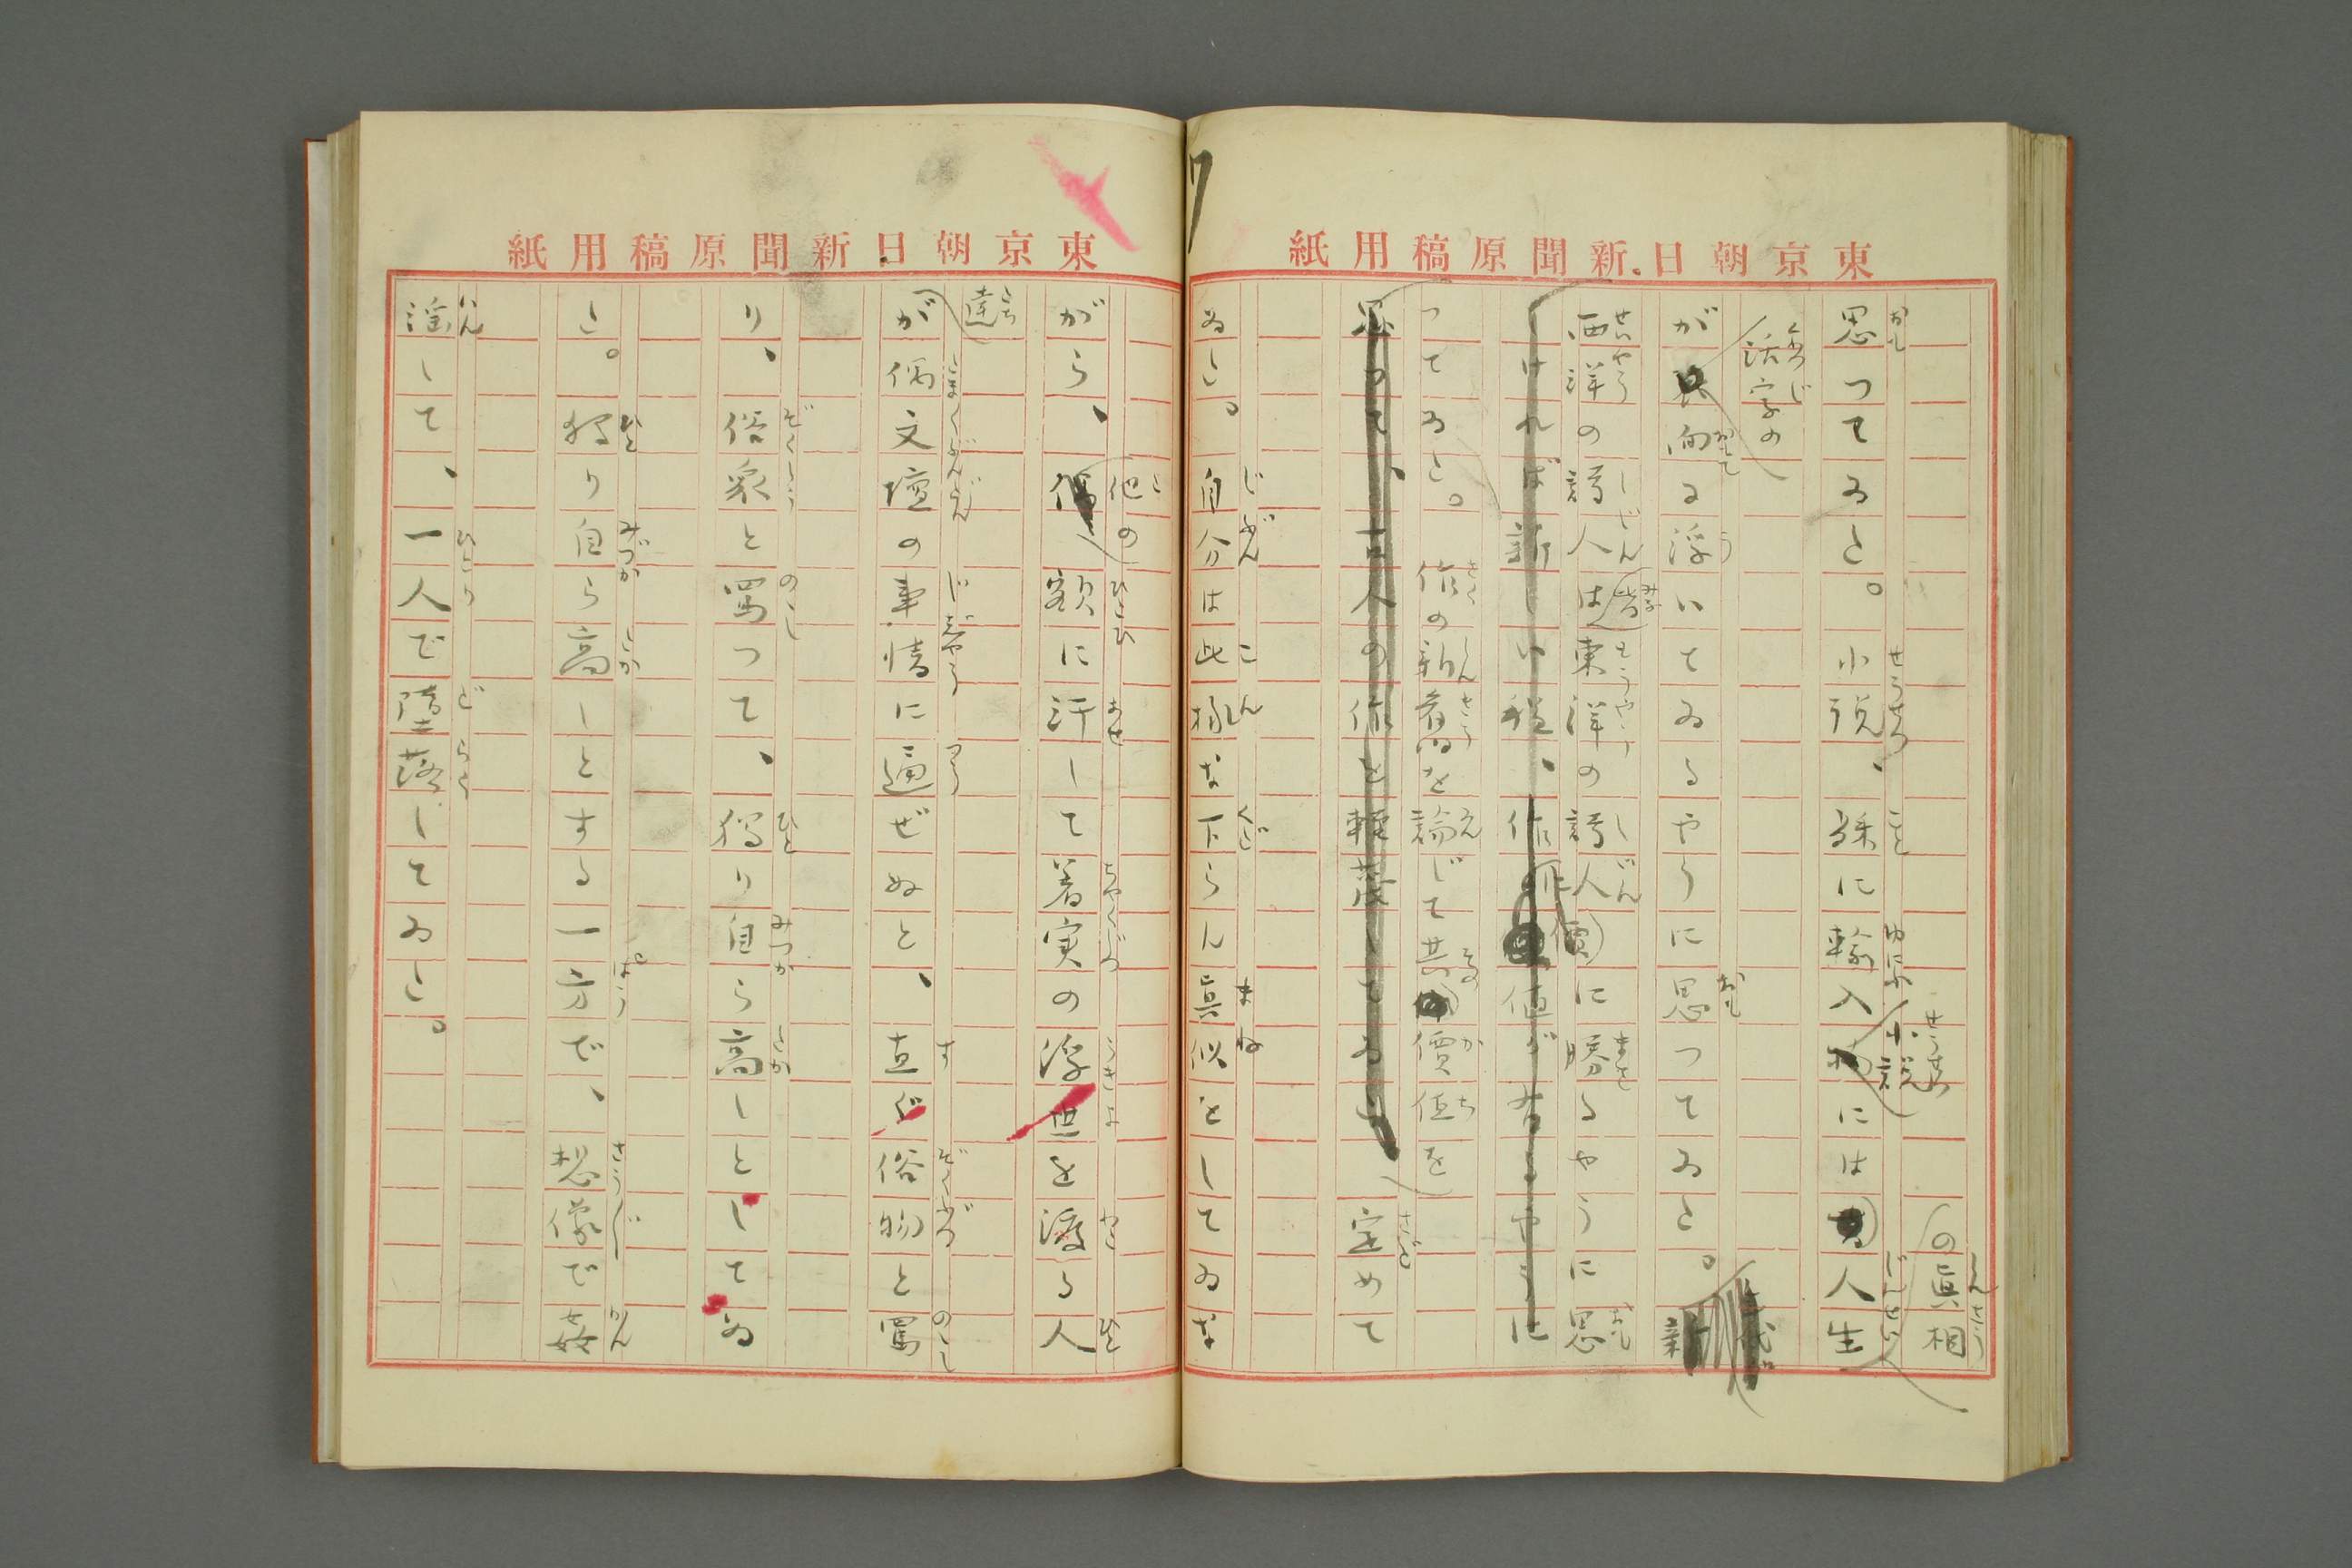 東京朝日新聞原稿用紙
の眞相
小説
思つてゐた。小説、殊に輸入物には人生
活字の
が面に浮いてゐるやうに思つてゐた。新
西洋の詩人は皆東洋の詩人に勝るやうに思
しければ新しい程、作に價値があるやうに
つてゐた。作の新舊を論じて其價値を
思つて、古人の作を輕蔑してゐた 定めて
ゐた。自分は此様な下らん眞似をしてゐな
7
東京朝日新聞原稿用紙
他の
がら、額に汗して着実の浮世を渡る人
達
が偶文壇の事情に通ぜぬと、直ぐ俗物と罵
り、俗衆と罵つて、獨り自ら高しとしてゐ
た。獨り自ら高しとする一方で、想像で姦
淫して、一人で墮落してゐた。